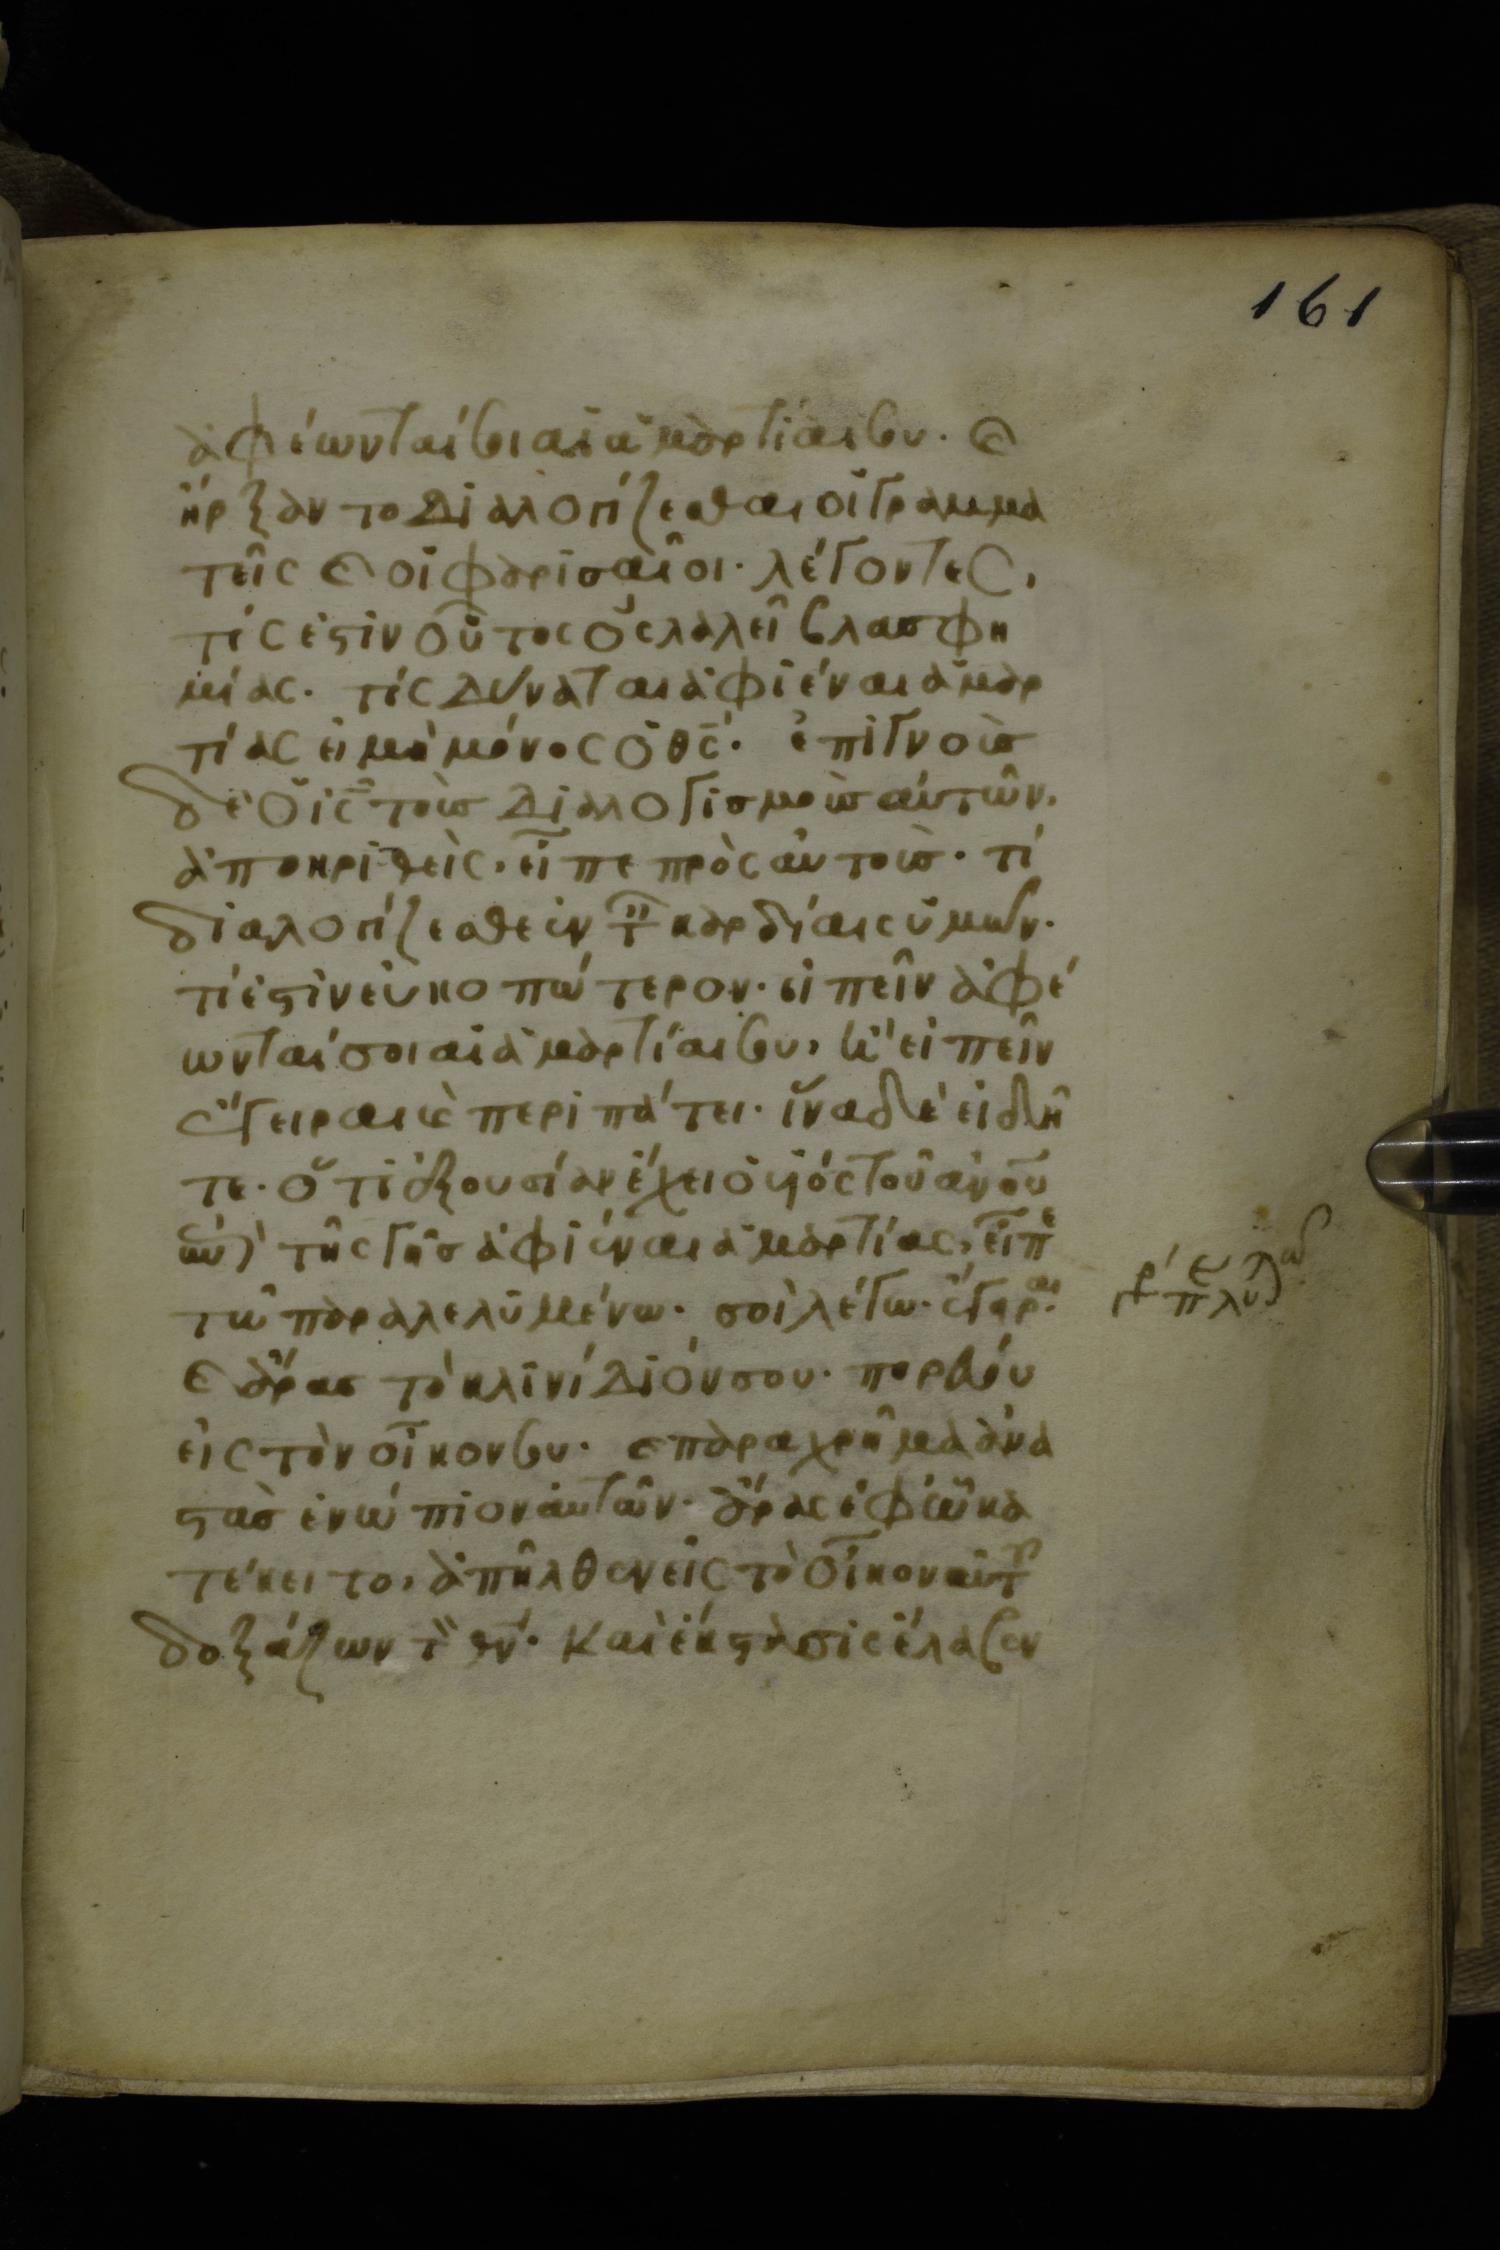 161
ἀφέωνταί σοι αἱ ἁμαρτίαι σου· καὶ
ἤρξαντο διαλογίζεσθαι οἱ γραμμα
τεῖς καὶ οἱ φαρισαῖοι· λέγοντες,
τίς ἐστιν οὗτος ὃς λαλεῖ βλασφη
μίας· τίς δύναται ἀφιέναι ἁμαρ
τίας εἰ μὴ μόνος ὁ θς· ἐπιγνοὺς
δὲ ὁ ις τοὺς διαλογισμοὺς αὐτῶν,
ἀποκριθεὶς, εἶπε πρὸς αὐτοὺς· τί
διαλογίζεσθε ἐν τ καρδίαις ὑμῶν·
τί ἐστιν εὐκοπώτερον· εἰπεῖν ἀφέ
ωνταί σοι αἱ ἁμαρτίαι σου, ἢ εἰπεῖν
ἔγειραι καὶ περιπάτει· ἵνα δὲ εἰδῆ
τε· ὅτι ἐξουσίαν ἔχει ὁ υἱὸς τοῦ ανου
ἐπὶ τῆς γῆς ἀφιέναι ἁμαρτίας, εἶπε
τῶ παραλελυμένω· σοὶ λέγω· ἔγειραι·
καὶ ἄρας τὸ κλινίδιόν σου· πορεύου
εἰς τὸν οἶκον σου· καὶ παραχρῆμα ἀνα
στὰς ἐνώπιον αὐτῶν· ἄρας ἐφ ὧ κα
τέκειτο, ἀπῆλθεν εἰς τὸ οἶκον αὐτου
δοξάζων τ θν· Καὶ ἔκστασις ἔλαβεν